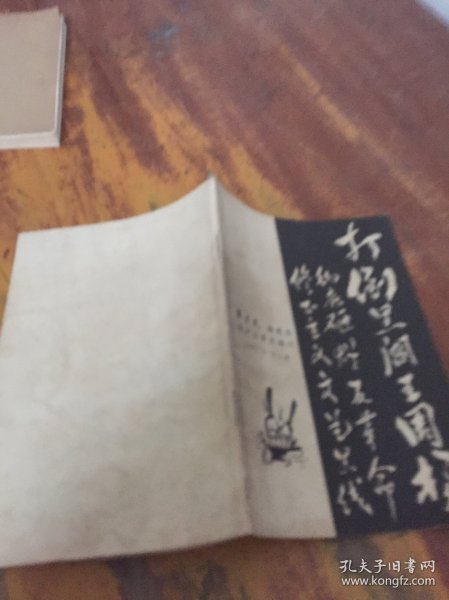 打倒黑阎王周扬
彻底砸烂反革命
修正主义文艺黑线
孔夫子旧书网
www.kongfz.com